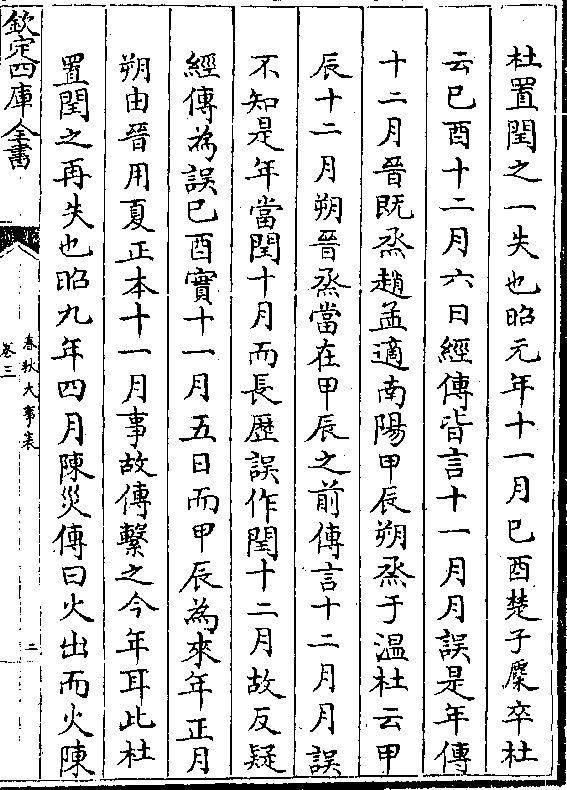 杜置閏之一失也昭元年十一月己酉楚子麇卒杜
云己酉十二月六日經傳皆言十一月月誤是年傳
十二月晉既烝趙孟適南陽甲辰朔烝于溫杜云甲
辰十二月朔晉烝當在甲辰之前傳言十二月月誤
不知是年當閏十月而長歷誤作閏十二月故反疑
經傳為誤己酉實十一月五日而甲辰為來年正月
朔由晉用夏正本十一月事故傳繫之今年耳此杜
置閏之再失也昭九年四月陳災傳曰火出而火陳
欽定四庫全書
春秋大事表
卷三
二